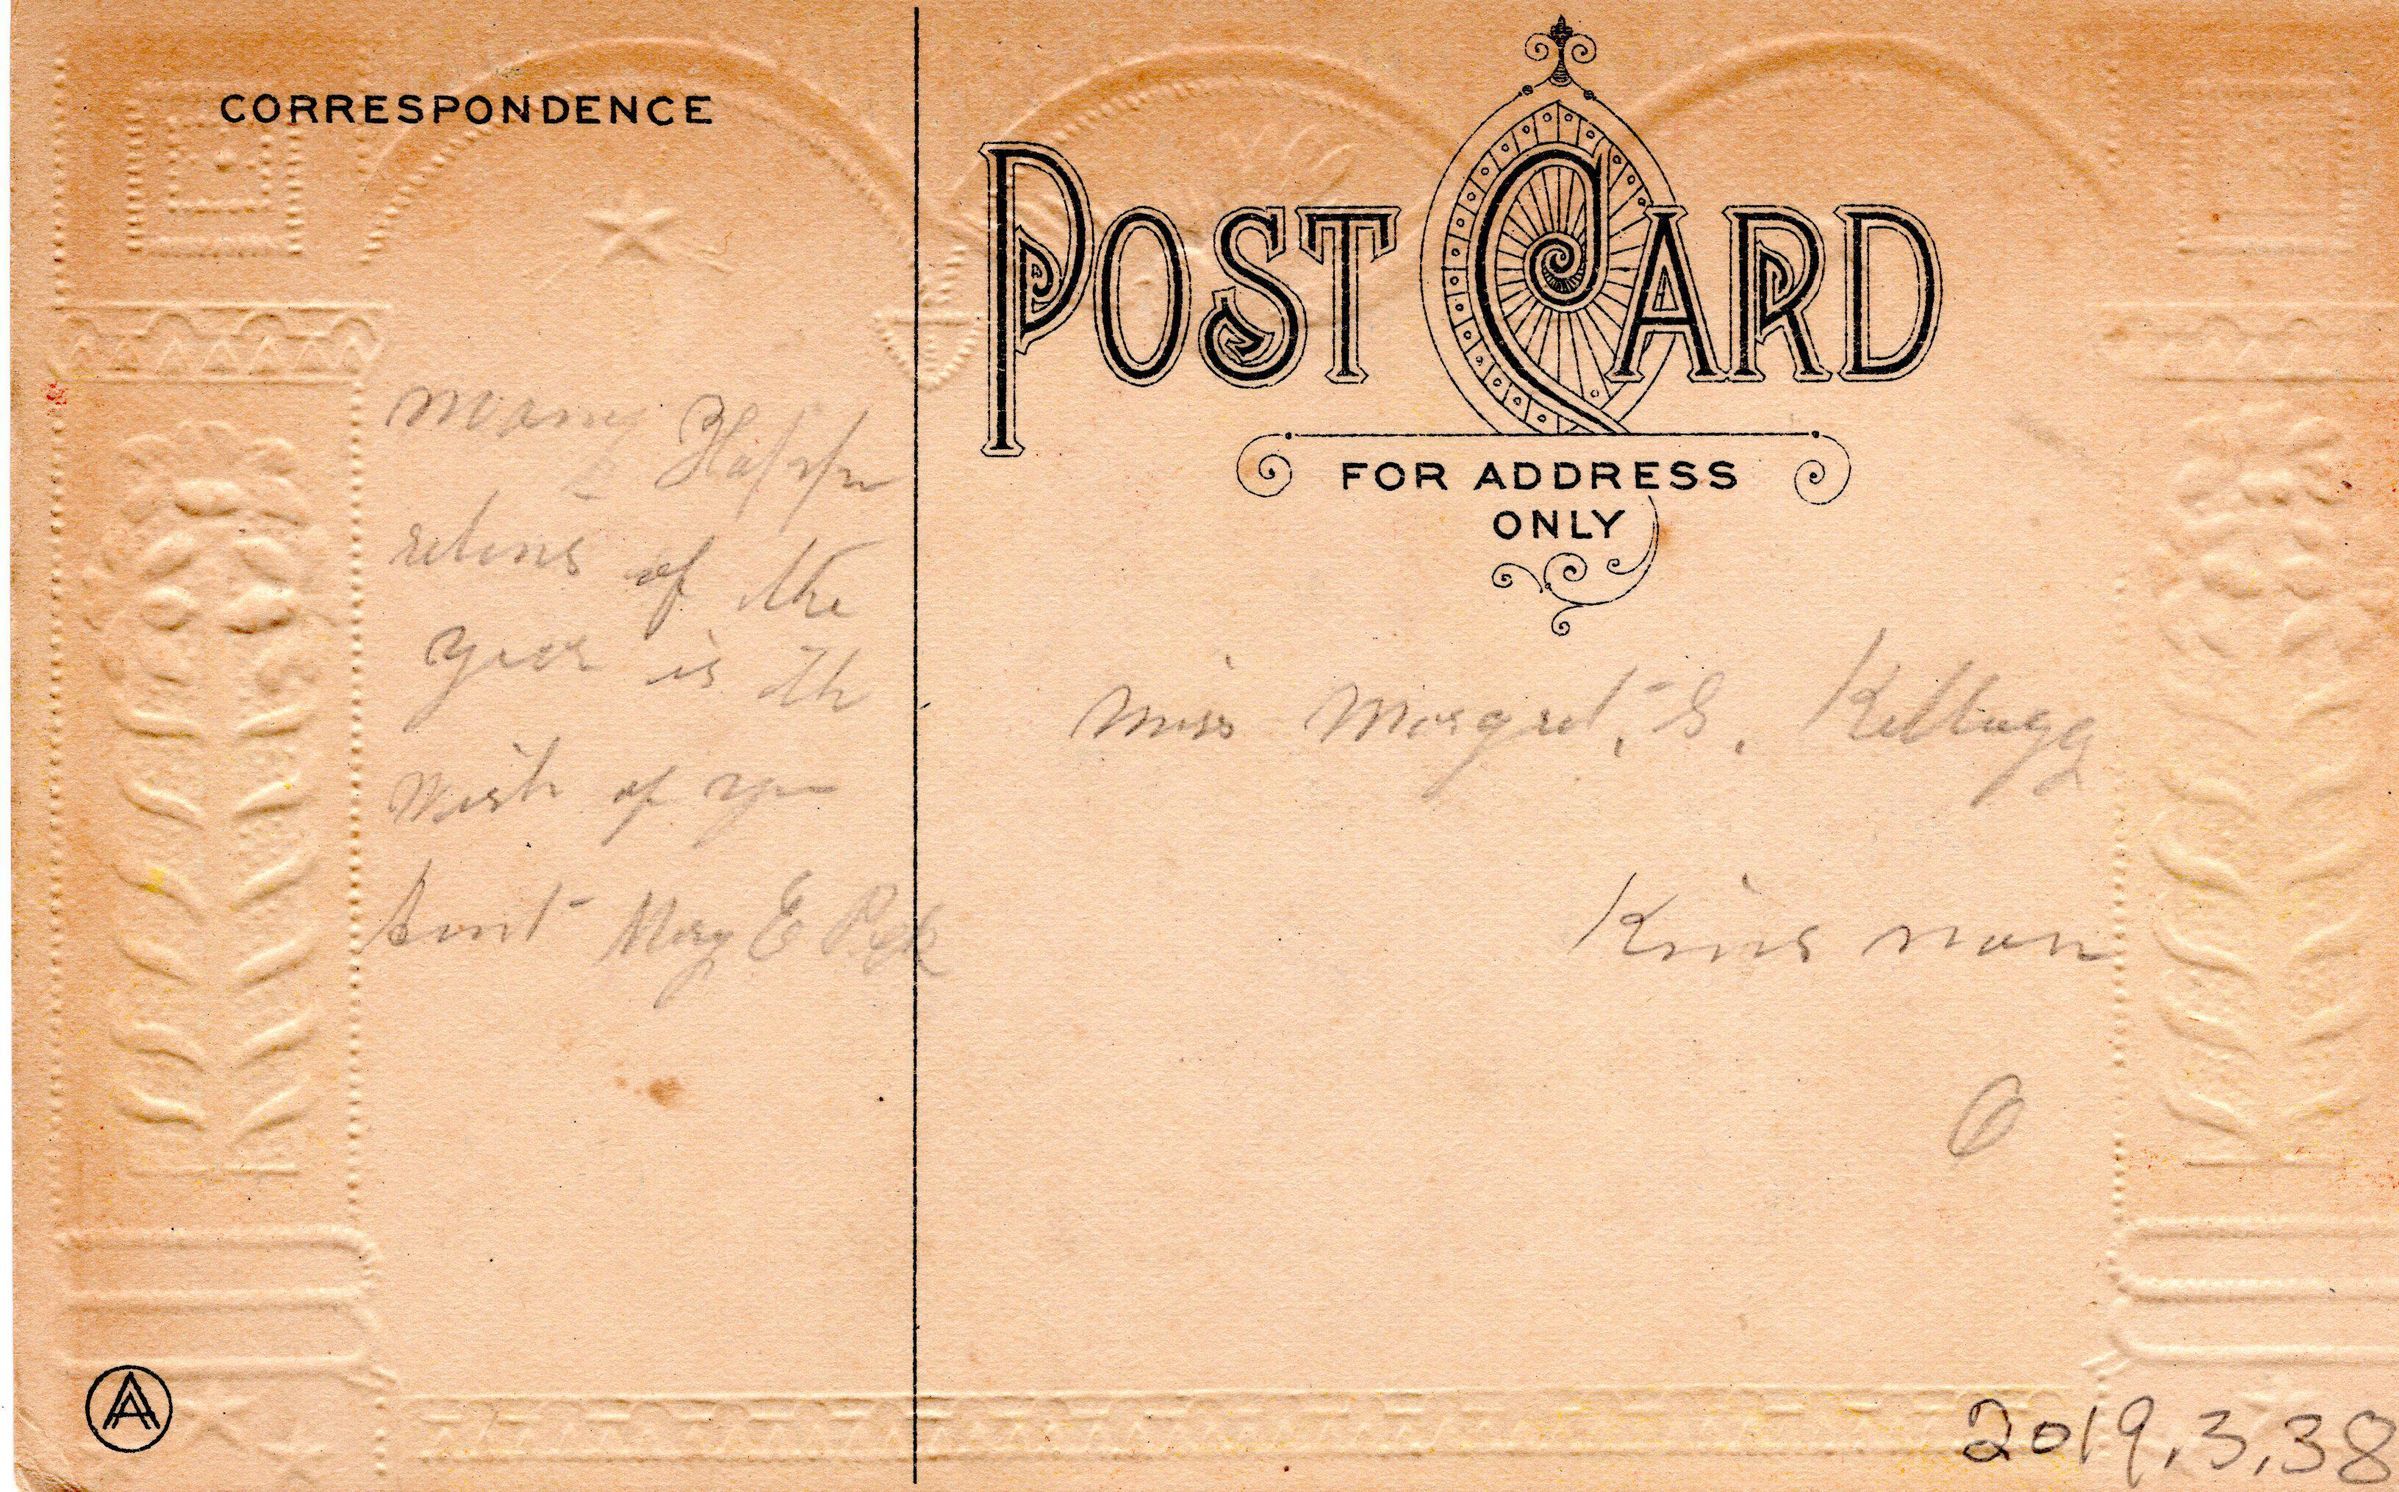 CORRESPONDENCE
POST CARD
FOR ADDRESS
ONLY
Many
Happy
returns of the
year is th
wish of you
Aunt May E Peck
Miss Margret. S. Kellogg
Kinsman
O
2019.3.38